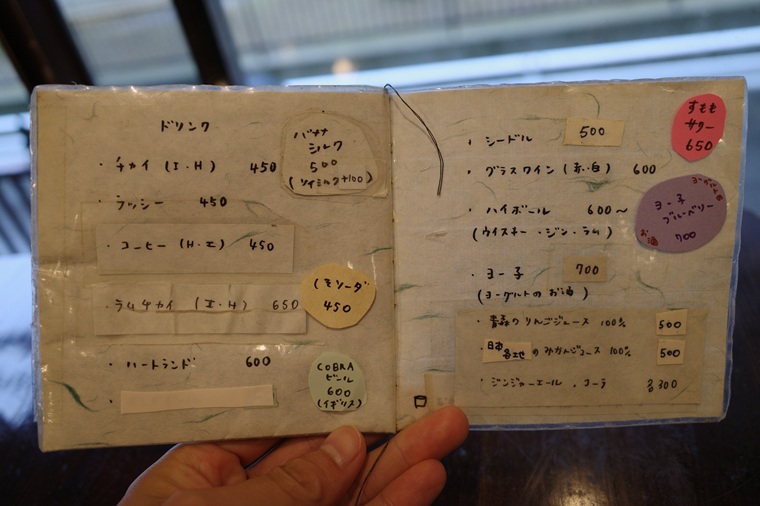 ドリンク
・チャイ (I・H) 450
・ラッシー 450
・コーヒー (H・I) 450
・ラムチャイ (I・H) 650
・ハートランド 600
バナナ
ミルク
500
(ソイミルク+100)
レモソーダ
450
COBRA
ビール
600
(イギリス)
・シードル 500
・グラスワイン (赤・白) 600
・ハイボール 600〜
(ウイスキー・ジン・ラム)
・ヨー子 700
(ヨーグルトのお酒)
・青森のりんごジュース 100% 500
・日本各地のみかんジュース 100% 500
・ジンジャーエール・コーラ 各300
すもも
サワー
650
ヨーグルトの
ヨー子
ブルーベリー
お酒 700